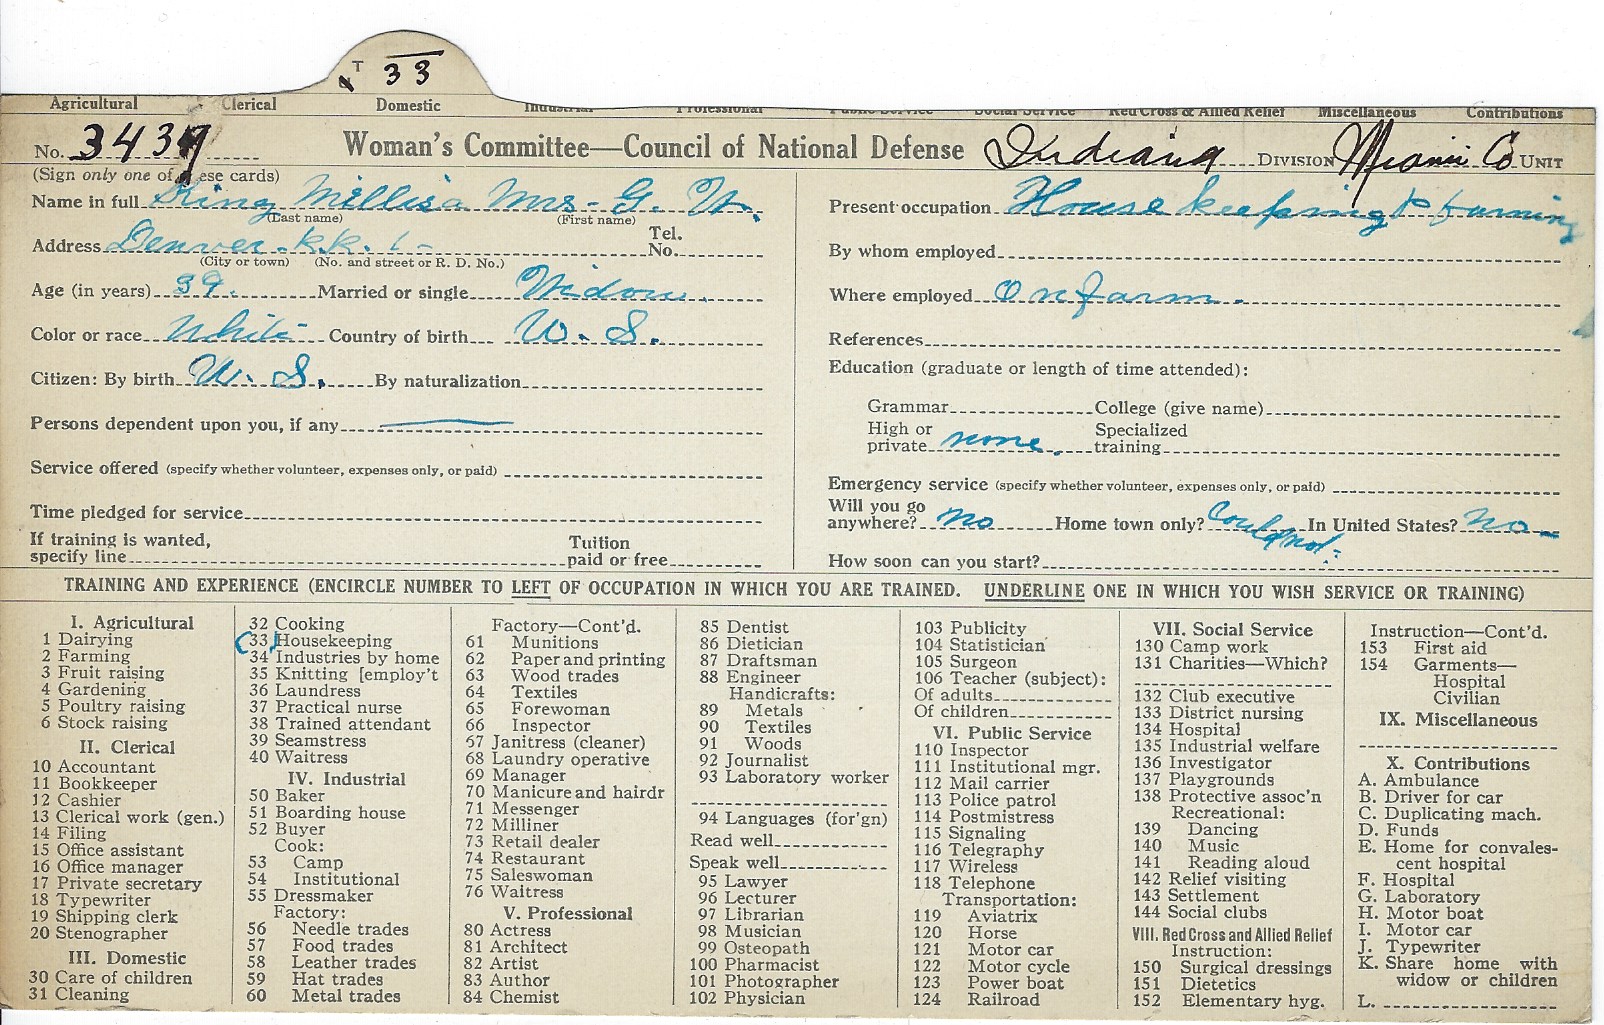 T 33
Agricultural Clerical Domestic Industrial Professional Public Service Social Service Red Cross & Allied Relief Miscellaneous Contributions
No. 3437 Woman's Committee—Council of National Defense Indiana DIVISION Miami Co UNIT
(Sign only one of these cards)
Name in full King Millisa Mrs- G. W.
(Last name) (First name)
Address Denver. R.R. 1- Tel. No.
(City or town) (No. and street or R. D. No.)
Age (in years) 39. Married or single Widow.
Color or race White Country of birth U. S.
Citizen: By birth U. S. By naturalization
Persons dependent upon you, if any ——
Service offered (specify whether volunteer, expenses only, or paid)
Time pledged for service
If training is wanted,
specify line
Tuition
paid or free
Present occupation House keeping & farming
By whom employed
Where employed On farm.
References
Education (graduate or length of time attended):
Grammar College (give name)
High or
private none.
Specialized
training
Emergency service (specify whether volunteer, expenses only, or paid)
Will you go
anywhere? no Home town only? Could not. In United States? no-
How soon can you start?
TRAINING AND EXPERIENCE (ENCIRCLE NUMBER TO LEFT OF OCCUPATION IN WHICH YOU ARE TRAINED. UNDERLINE ONE IN WHICH YOU WISH SERVICE OR TRAINING)
I. Agricultural
1 Dairying
2 Farming
3 Fruit raising
4 Gardening
5 Poultry raising
6 Stock raising
II. Clerical
10 Accountant
11 Bookkeeper
12 Cashier
13 Clerical work (gen.)
14 Filing
15 Office assistant
16 Office manager
17 Private secretary
18 Typewriter
19 Shipping clerk
20 Stenographer
III. Domestic
30 Care of children
31 Cleaning
32 Cooking
33 Housekeeping
34 Industries by home
35 Knitting [employ't
36 Laundress
37 Practical nurse
38 Trained attendant
39 Seamstress
40 Waitress
IV. Industrial
50 Baker
51 Boarding house
52 Buyer
Cook:
53 Camp
54 Institutional
55 Dressmaker
Factory:
56 Needle trades
57 Food trades
58 Leather trades
59 Hat trades
60 Metal trades
Factory—Cont'd.
61 Munitions
62 Paper and printing
63 Wood trades
64 Textiles
65 Forewoman
66 Inspector
67 Janitress (cleaner)
68 Laundry operative
69 Manager
70 Manicure and hairdr
71 Messenger
72 Milliner
73 Retail dealer
74 Restaurant
75 Saleswoman
76 Waitress
V. Professional
80 Actress
81 Architect
82 Artist
83 Author
84 Chemist
85 Dentist
86 Dietician
87 Draftsman
88 Engineer
Handicrafts:
89 Metals
90 Textiles
91 Woods
92 Journalist
93 Laboratory worker
94 Languages (for'gn)
Read well
Speak well
95 Lawyer
96 Lecturer
97 Librarian
98 Musician
99 Osteopath
100 Pharmacist
101 Photographer
102 Physician
103 Publicity
104 Statistician
105 Surgeon
106 Teacher (subject):
Of adults
Of children
VI. Public Service
110 Inspector
111 Institutional mgr.
112 Mail carrier
113 Police patrol
114 Postmistress
115 Signaling
116 Telegraphy
117 Wireless
118 Telephone
Transportation:
119 Aviatrix
120 Horse
121 Motor car
122 Motor cycle
123 Power boat
124 Railroad
VII. Social Service
130 Camp work
131 Charities—Which?
132 Club executive
133 District nursing
134 Hospital
135 Industrial welfare
136 Investigator
137 Playgrounds
138 Protective assoc'n
Recreational:
139 Dancing
140 Music
141 Reading aloud
142 Relief visiting
143 Settlement
144 Social clubs
VIII. Red Cross and Allied Relief
Instruction:
150 Surgical dressings
151 Dietetics
152 Elementary hyg.
Instruction—Cont'd.
153 First aid
154 Garments—
Hospital
Civilian
IX. Miscellaneous
X. Contributions
A. Ambulance
B. Driver for car
C. Duplicating mach.
D. Funds
E. Home for convales-
cent hospital
F. Hospital
G. Laboratory
H. Motor boat
I. Motor car
J. Typewriter
K. Share home with
widow or children
L.